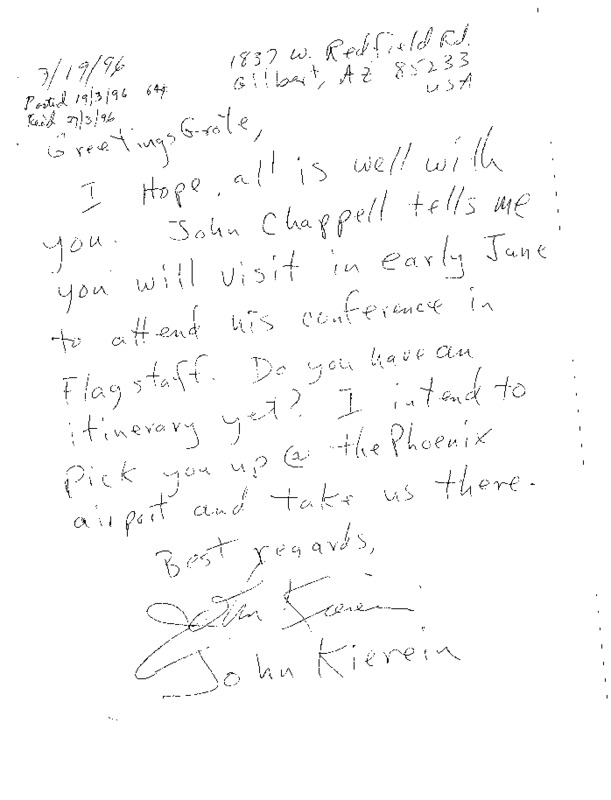 3/19/96
1837 W. Redfield Rd.
Gilbert, AZ 85233
USA
Posted 19/3/96 64¢
Rec'd 27/3/96
Greetings Grote,
I Hope all is well with
you. John Chappell tells me
you will visit in early June
to attend his conference in
Flagstaff. Do you have an
itinerary yet? I intend to
Pick you up @ the Phoenix
airport and take us there.
Best regards,
John Kierein
John Kierein